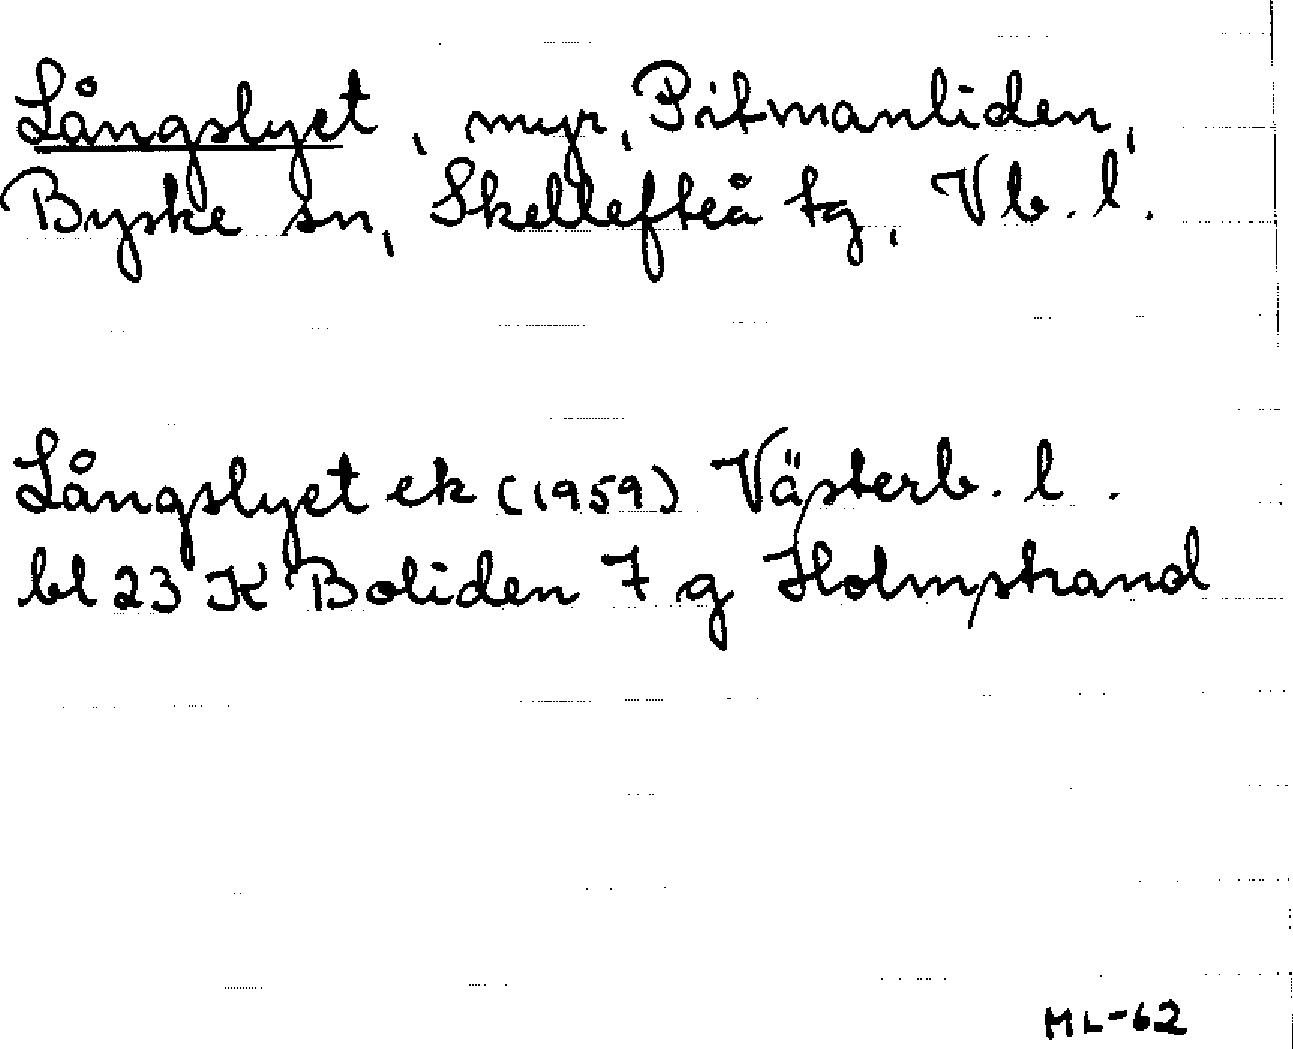 Långslyet, myr, Pitmanliden,
Byske sn, Skellefteå tg, Vb. l.
Långslyet ek (1959) Västerb. l.
bl 23 K Boliden 7 g Holmstrand
ML-62